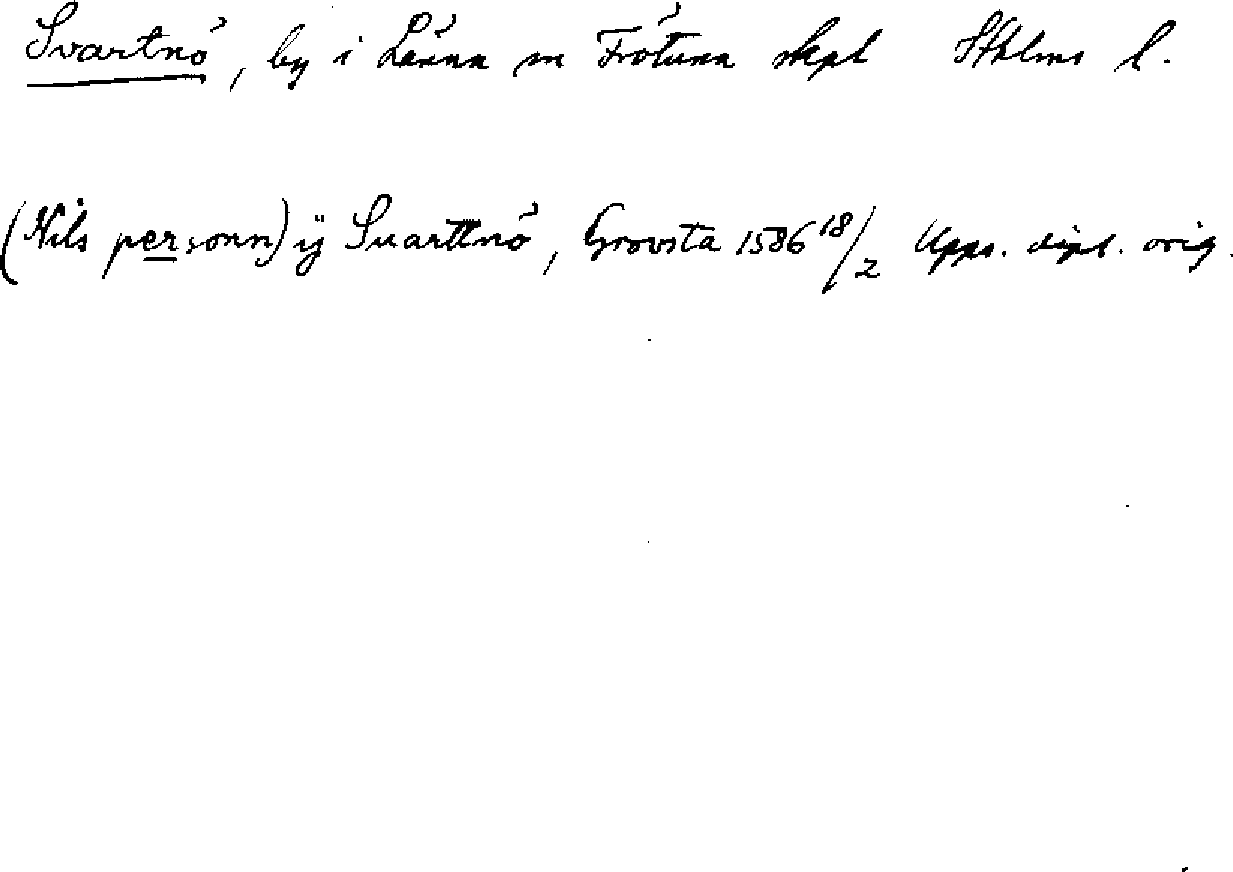 Svartnö, by i Länna sn Frötuna skpl Sthlms l.
(Nils personn) ÿ Suarttnö, Grovsta 1586 18/2 Upps. dipl. orig.